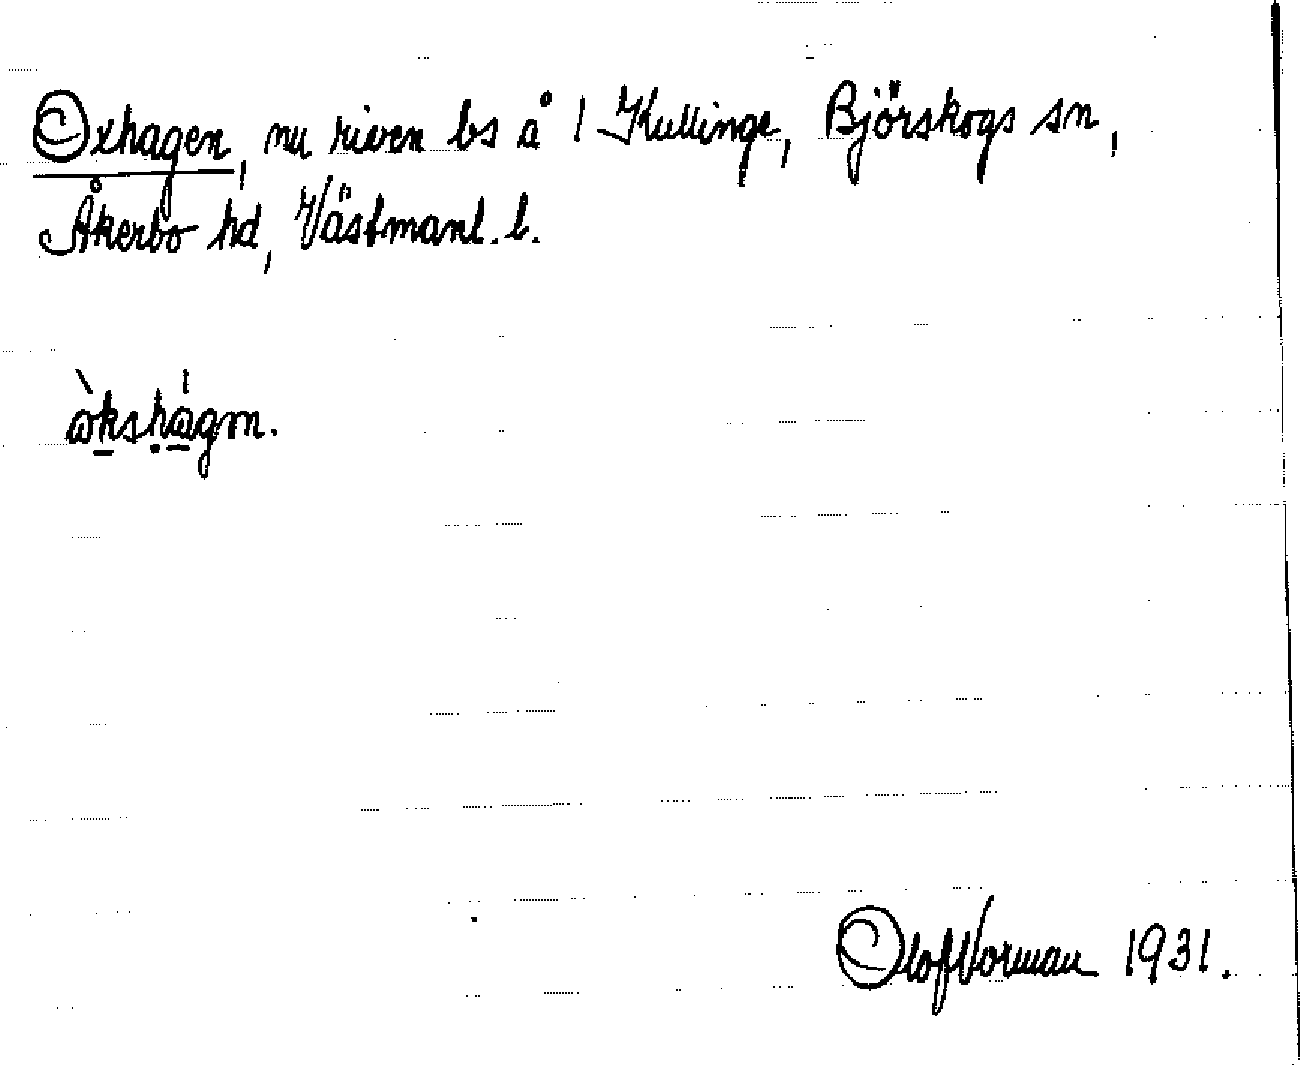 Oxhagen, nu riven bs å 1 Kullinge, Björskogs sn,
Åkerbo hd, Västmanl. l.
Olof Norman 1931.